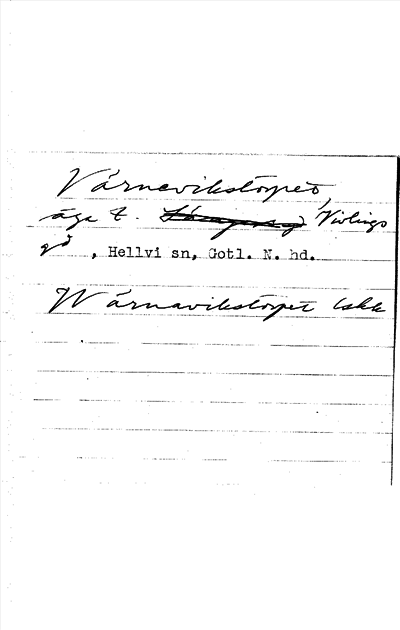 Värnevikstorpet,
äga t. Vivlings
gd , Hellvi sn, Gotl. N. hd.
Wärnavikstorpet lskk